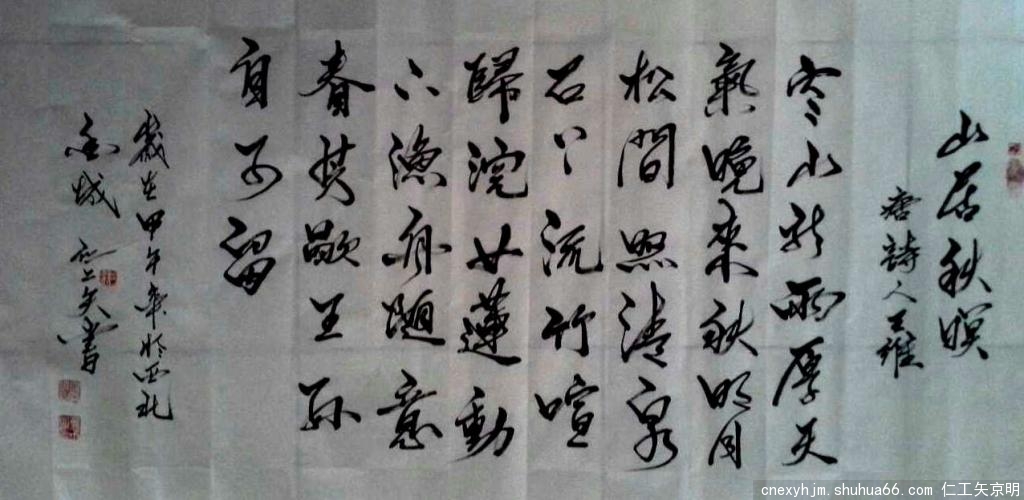 山居秋暝
唐詩人王維
空山新雨厚天
氣晚來秋明月
松間照清泉
石上流竹喧
歸浣女蓮動
下漁舟隨意
春芳歇王孫
自可留
歲在甲午年於西北
金城 書
cnexyhjm.shuhua66.com 仁工矢京明